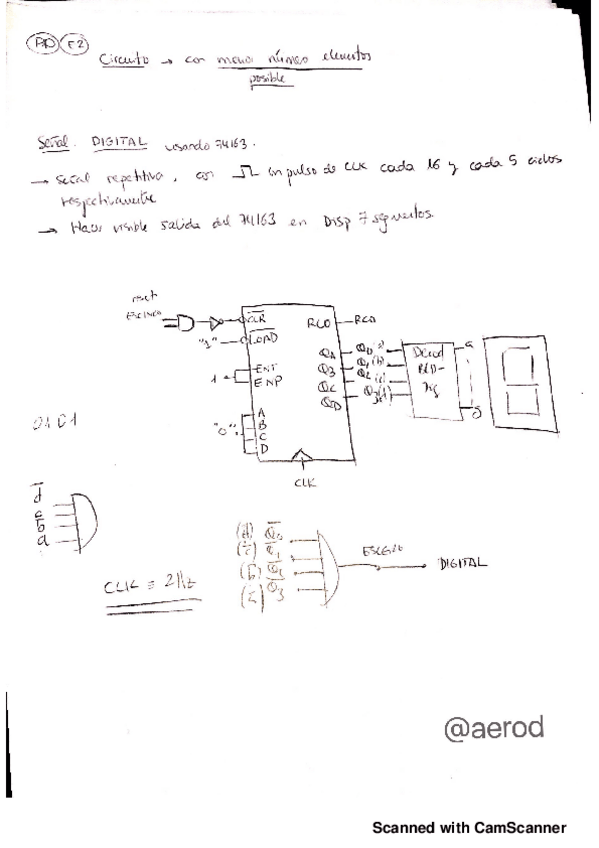 PD E2
Circuito → con menor número elementos
posible
Señal DIGITAL usando 74163.
→ señal repetitiva, con impulso de CLK cada 16 y cada 5 ciclos
respectivamente
→ Hacer visible salida del 74163 en Disp 7 segmentos.
reset
CLR
RCO
RCO
"1"
LOAD
1
ENT
ENP
QA
QB
QC
QD
Q0
Q1
Decod
BCD-
7sg
a
g
"0"
A
B
C
D
CLK
0101
d
c
b
a
CLK = 2Hz
Q0
Q1
Q2
Q3
DIGITAL
@aerod
Scanned with CamScanner